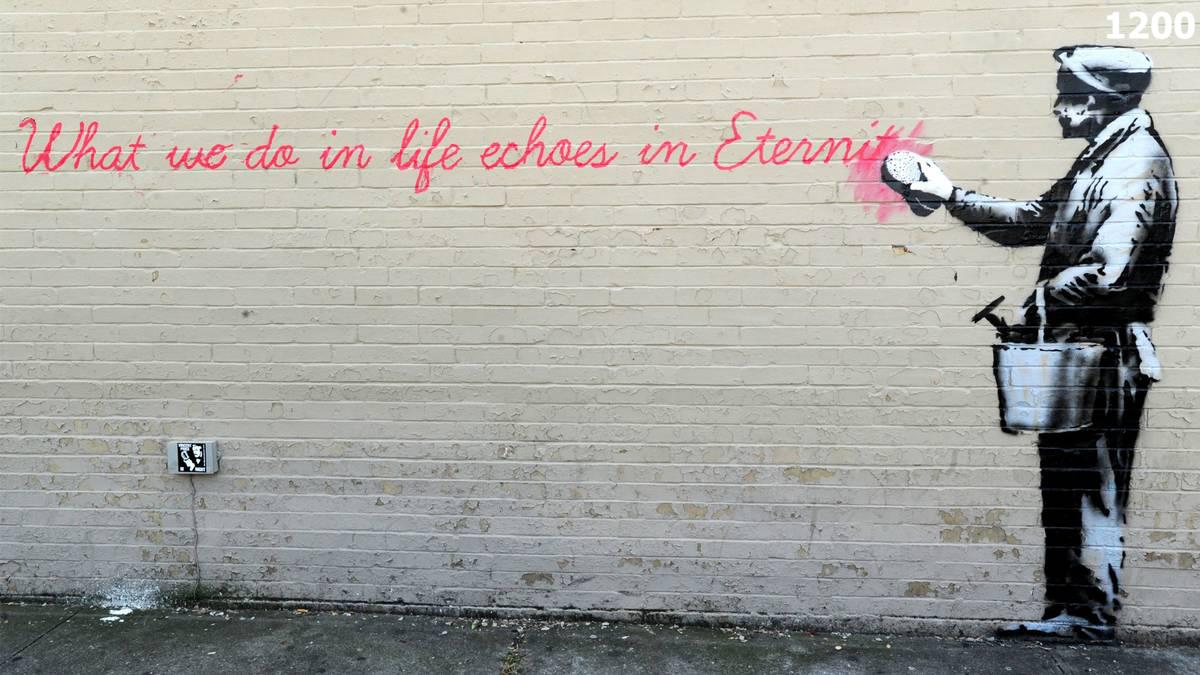 1200
What we do in life echoes in Eternit